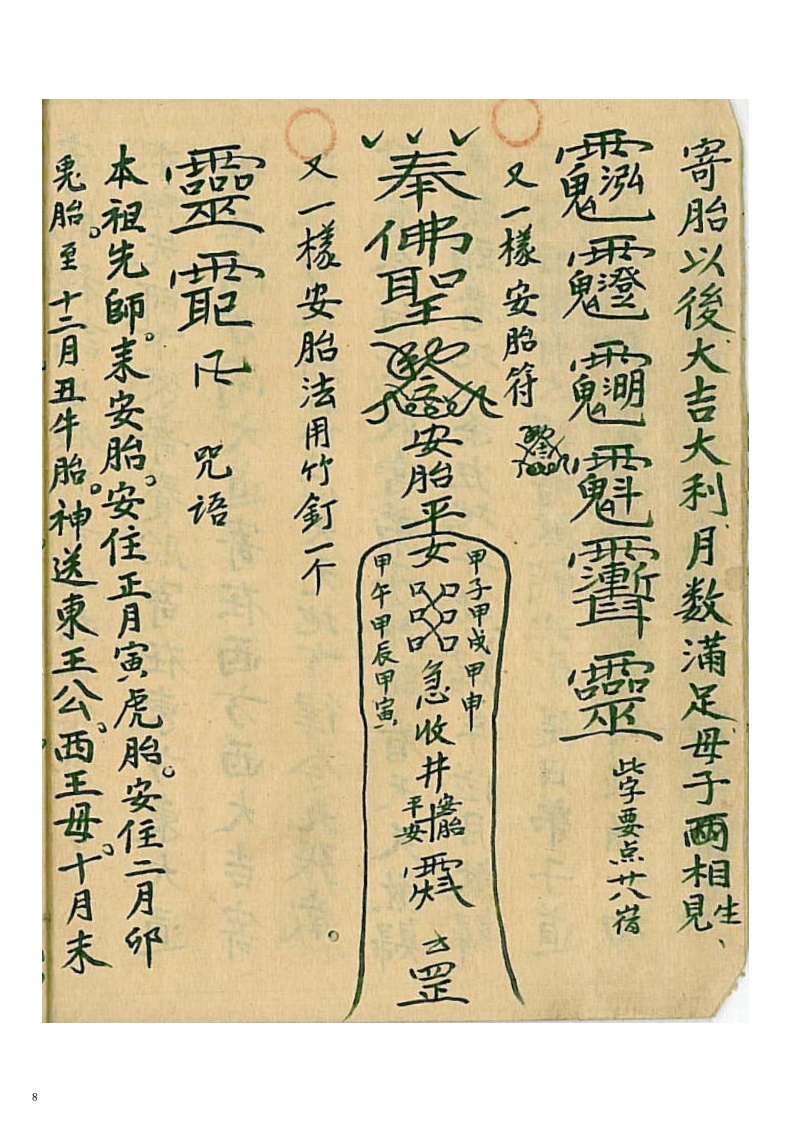 寄胎以後大吉大利月数滿足母子兩相見生、
靈
此字要点廿八宿
又一樣安胎符
奉佛聖
安胎平安
甲子甲戌甲申
甲午甲辰甲寅
口口口口口口
急收井
安胎
平安
罡
又一樣安胎法用竹釘一个。
靈
卍
咒语
本祖先師。来安胎。安住正月寅虎胎。安住二月卯
兎胎。至十二月丑牛胎。神送東王公。西王母。十月末
8